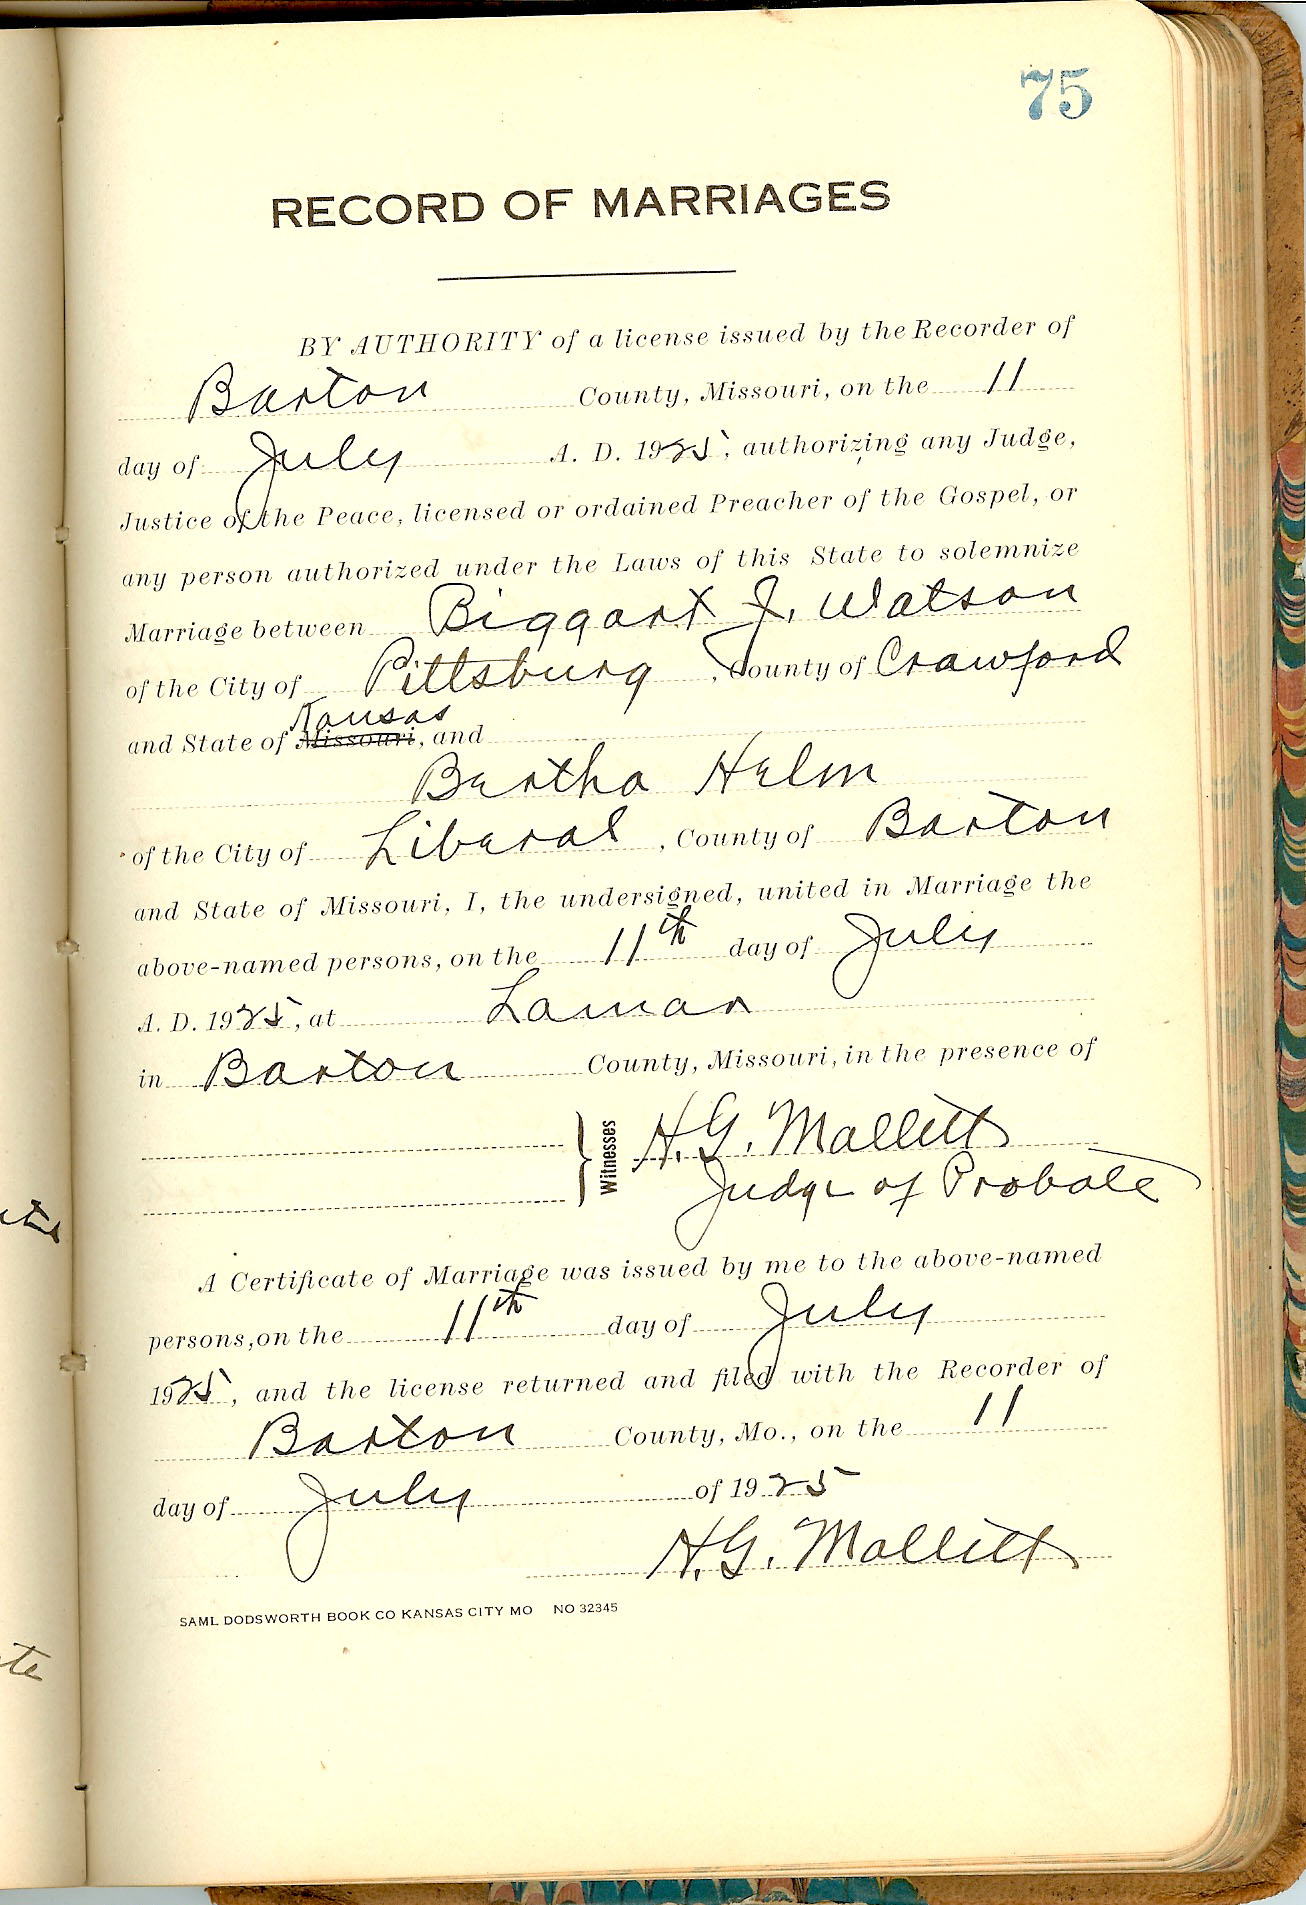 75
RECORD OF MARRIAGES
BY AUTHORITY of a license issued by the Recorder of
Barton County, Missouri, on the 11
day of July A. D. 1925, authorizing any Judge,
Justice of the Peace, licensed or ordained Preacher of the Gospel, or
any person authorized under the Laws of this State to solemnize
Marriage between Biggart J. Watson
of the City of Pittsburg, County of Crawford
Kansas
and State of Missouri, and
Bertha Helm
of the City of Liberal, County of Barton
and State of Missouri, I, the undersigned, united in Marriage the
above-named persons, on the 11th day of July
A. D. 1925, at Lamar
in Barton County, Missouri, in the presence of
Witnesses
H. G. Mallitt
Judge of Probate
A Certificate of Marriage was issued by me to the above-named
persons, on the 11th day of July
1925, and the license returned and filed with the Recorder of
Barton County, Mo., on the 11
day of July of 1925
H. G. Mallitt
SAML DODSWORTH BOOK CO KANSAS CITY MO NO 32345